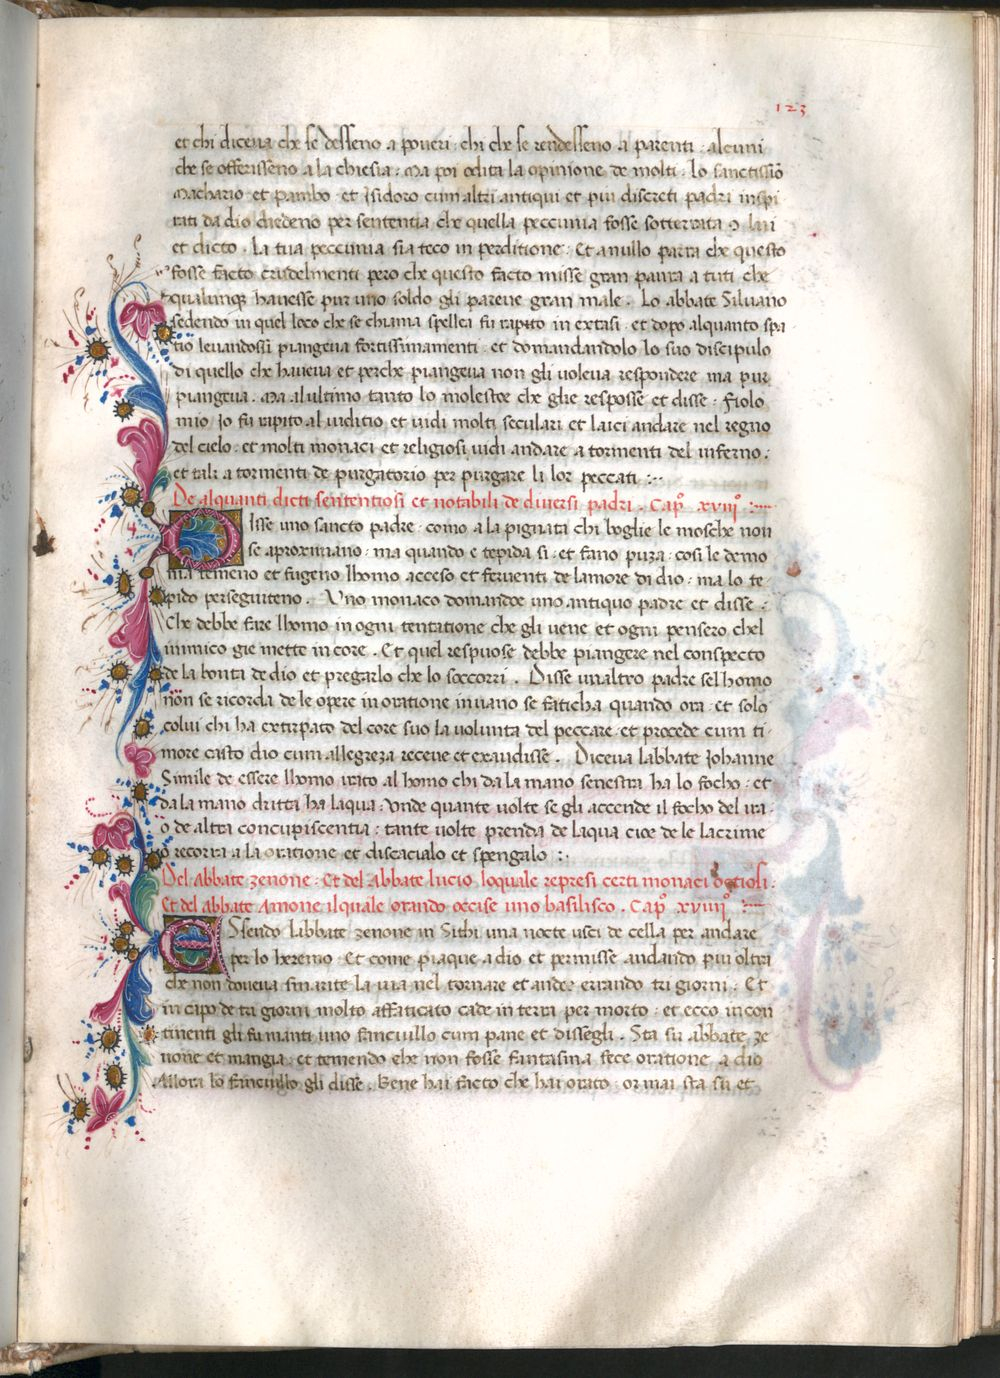 123
et chi diceua che se desseno a poueri : chi che se rendesseno a parenti : alcuni
che se offerisseno a la chiesia : Ma poi odita la opinione de molti : lo sanctissiō
Machario et pambo et Isidoro cum altri antiqui et piu discreti padri inspi
rati da dio diedeno per sententia che quella peccunia fosse sotterrata 9 lui
et dicto . La tua peccunia sia teco in perditione : Et a nullo parra che questo
fosse facto crudelmenti pero che questo facto misse gran paura a tuti che
qualunqꝫ hauesse pur uno soldo gli pareue gran male . Lo abbate Siluano
sedendo in quel loco che se chiama spellea fu rapito in extasi : et dopo alquanto spa
tio leuandossi piangeua fortissimamenti : et domandandolo lo suo discipulo
di quello che haueua et perche piangeua non gli uoleua respondere ma pur
piangeua . Ma al ultimo tanto lo molestoe che glie resposse et disse : Fiolo
mio Io fu rapito al iuditio et uidi molti seculari et laici andare nel regno
del cielo : et molti monaci et religiosi uidi andare a tormenti del inferno :
et tali a tormenti de purgatorio per purgare li lor peccati :
De alquanti dicti sententiosi et notabili de diuersi padri . Capº xviijº :
DIsse uno sancto padre : como a la pignata chi boglie le mosche non
se aproximano : ma quando e tepida si : et fano puza : cosi le demo
nia temeno et fugeno lhomo acceso et feruenti de lamore di dio : ma lo te
pido perseguiteno . Uno monaco domandoe uno antiquo padre et disse :
Che debbe fare lhomo in ogni tentatione che gli uene et ogni pensero chel
inimico gie mette in core . Et quel respuose debbe piangere nel conspecto
de la bonta de dio et pregarlo che lo soccorri . Disse unaltro padre sel homo
non se ricorda de le opere in oratione inuano se faticha quando ora : et solo
colui chi ha extirpato del core suo la uolunta del peccare et procede cum ti
more casto dio cum allegreza receue et exaudisse . Diceua labbate Iohanne
Simile de essere lhomo irato al homo chi da la mano senestra ha lo focho : et
da la mano dritta ha laqua : unde quante uolte se gli accende il focho del ira
o de altra concupiscentia : tante uolte prenda de laqua cioe de le lacrime
o recorra a la oratione et discacialo et spengalo :
Del abbate zenone : Et del Abbate lucio loquale represi certi monaci occioli :
Et del abbate Amone ilquale orando occise uno basilisco . Capº xviiijº :
ESsendo labbate zenone in Sithi una nocte usci de cella per andare
per lo heremo : Et come piaque a dio et permisse andando piu oltra
che non doueua smarite la uia nel tornare et ande errando tri giorni : Et
in capo de tri giorni molto affaticato cade in terra per morto : et ecco incon
tinenti gli fu inanti uno fanciullo cum pane et dissegli . Sta su abbate ze
none et mangia : et temendo che non fosse fantasma fece oratione a dio
Allora lo fanciullo gli disse . Bene hai facto che hai orato : or mai sta su et